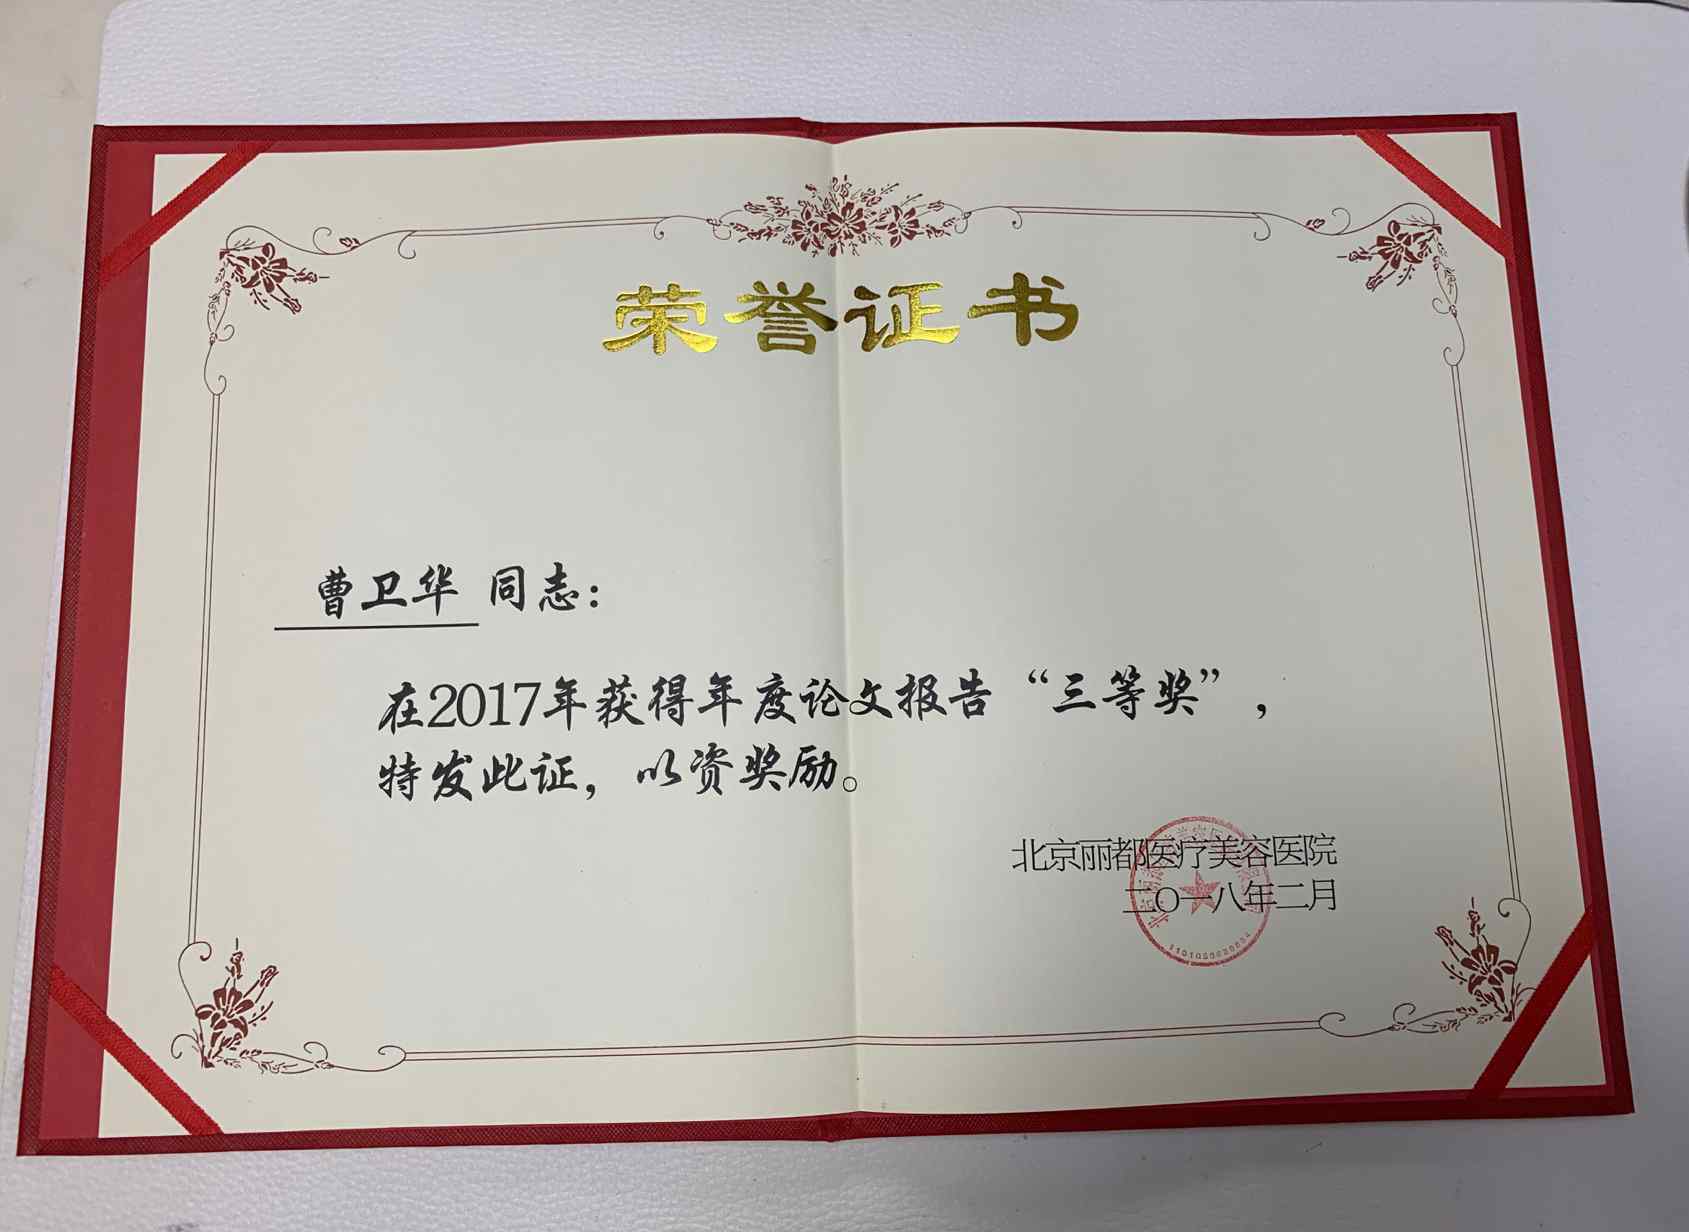 荣誉证书
曹卫华 同志：
在2017年获得年度论文报告“三等奖”，
特发此证，以资奖励。
北京丽都医疗美容医院
二〇一八年二月